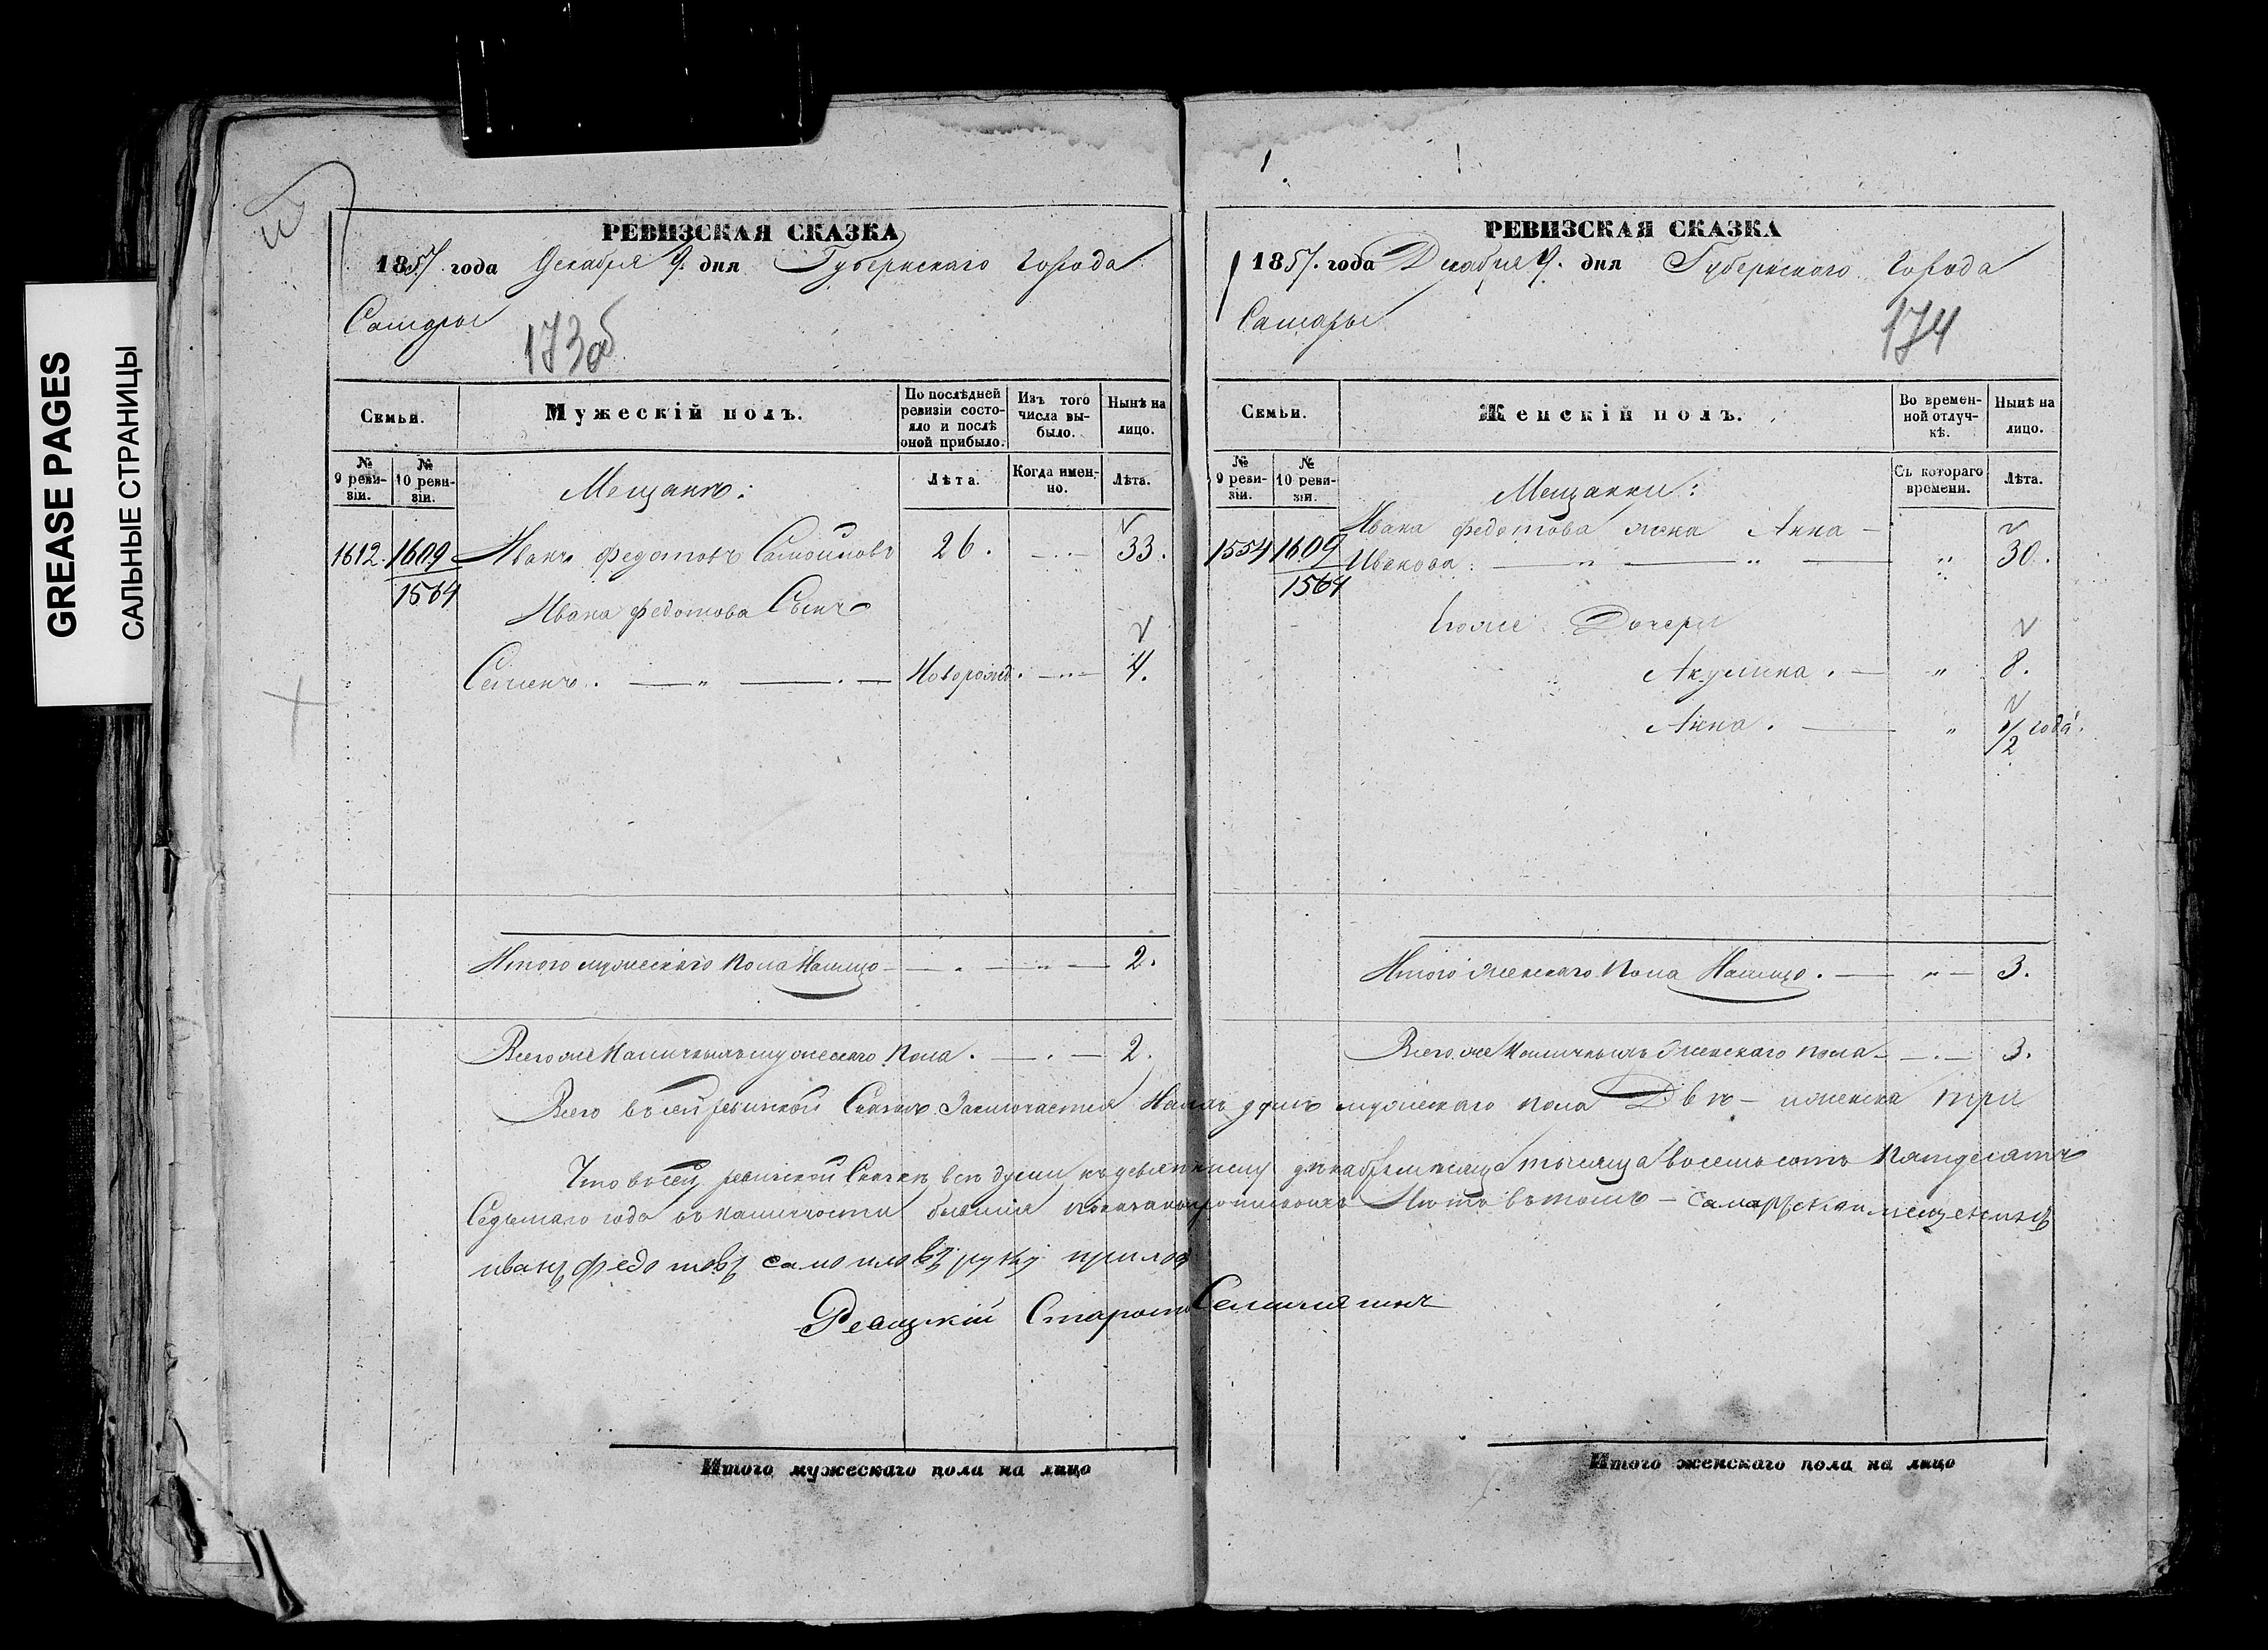 GREASE PAGES
САЛЬНЫЕ СТРАНИЦЫ
РЕВИЗСКАЯ СКАЗКА
1857. года Декабря 9. дня Губернскаго города
Самары
173об
Семьи.
Мужескій полъ.
По послѣдней ревизіи состояло и послѣ оной прибыло.
Изъ того числа выбыло.
Нынѣ на лицо.
№ 9 ревизіи.
№ 10 ревизіи.
Мещанѣ:
Лѣта.
Когда именно.
Лѣта.
1612. 1609 Иванъ Федотовъ Самойловъ 26. 33.
1564
Ивана Федотова Сынъ
Семенъ. Новорожд. 4.
Итого мужескаго пола Налицо 2.
Всего же Наличныхъ мужескаго пола. 2.
РЕВИЗСКАЯ СКАЗКА
1857. года Декабря 9. дня Губернскаго города
Самары
174
Семьи.
Женскій полъ.
Во временной отлучкѣ.
Нынѣ на лицо.
№ 9 ревизіи.
№ 10 ревизіи.
Мещанки:
Съ котораго времени.
Лѣта.
Ивана Федотова жена Анна
1554 1609 Иванова: 30.
1564
Ихъ Дочери
Акулина. 8.
Анна. 1/2 года.
Итого женскаго пола Налицо. 3.
Всего же Наличныхъ женскаго пола 3.
Всего въ сей ревизской Сказкѣ Заключается душъ мужескаго пола Двѣ - и женска три
Что въ сей ревизской Сказкѣ всѣ души къ девятому декабря тысяща восемь сотъ пятдесятъ
Седьмаго года въ наличности бывшія въ томъ - самарской мещенинъ
иванъ федотовъ самойловъ руку прилож
Староста
Итого мужескаго пола на лицо
Итого женскаго пола на лицо